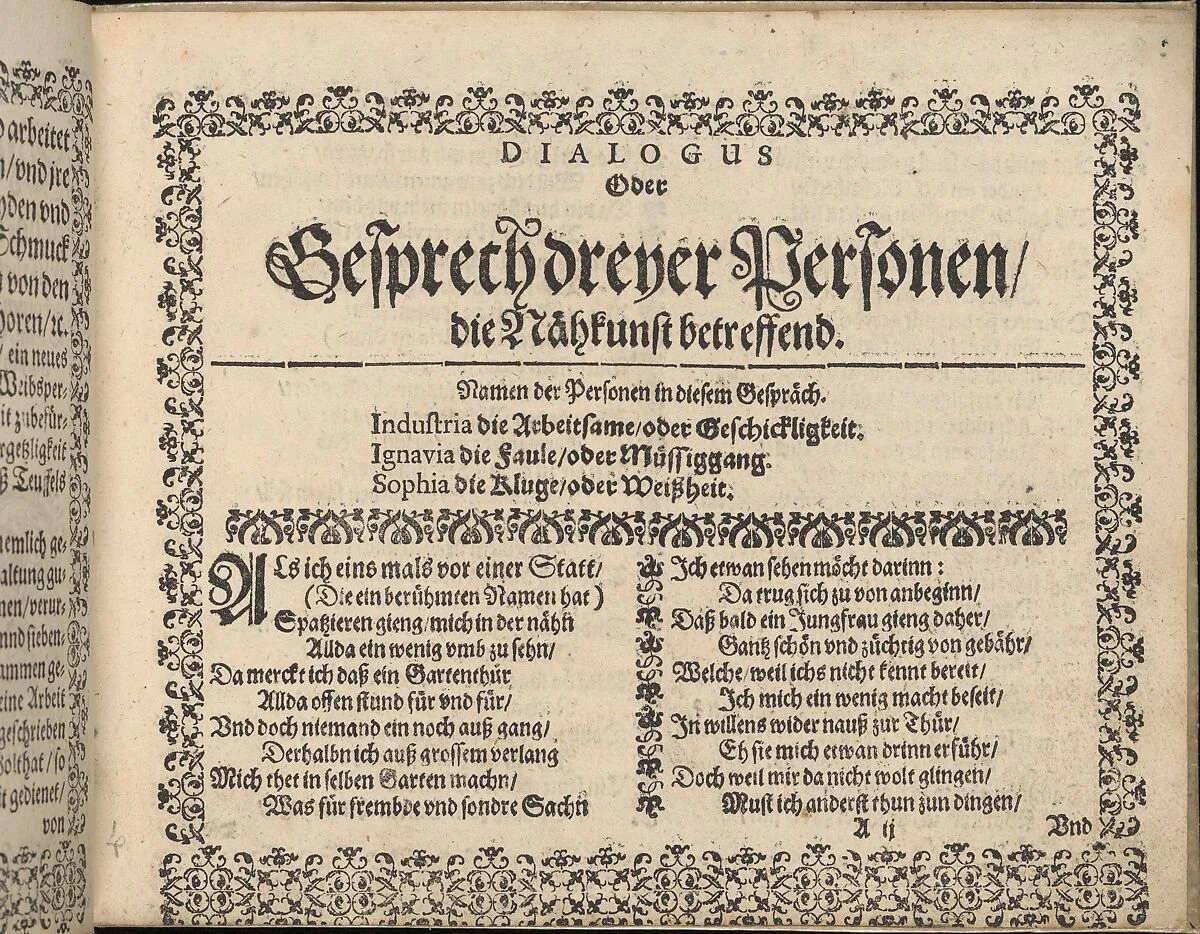 d arbeitet
n/vnd jre
yden vnd
Schmuck
n von den
horen/ꝛc.
/ ein neues
Weibsper-
it zubefür-
rgetzligkeit
ß Teuffels
nemlich ge-
altung gu-
nen/verur-
nnd sieben-
ammen ge-
eine Arbeit
geschrieben
Wolthat/so
it gedienet/
von
DIALOGUS
Oder
Gesprech dreyer Personen/
die Nähkunst betreffend.
Namen der Personen in diesem Gespräch.
Industria die Arbeitsame/oder Geschickligkeit.
Ignavia die Faule/oder Müssiggang.
Sophia die Kluge/oder Weißheit.
ALs ich eins mals vor einer Statt/
(Die ein berühmten Namen hat)
Spatzieren gieng/mich in der nähn
Allda ein wenig vmb zu sehn/
Da merckt ich daß ein Gartenthür
Allda offen stund für vnd für/
Vnd doch niemand ein noch auß gang/
Derhalbn ich auß grossem verlang
Mich thet in selben Garten machn/
Was für frembde vnd sondre Sachn
Ich etwan sehen möcht darinn:
Da trug sich zu von anbeginn/
Daß bald ein Jungfrau gieng daher/
Gantz schön vnd züchtig von gebähr/
Welche/weil ichs nicht kennt bereit/
Ich mich ein wenig macht beseit/
In willens wider nauß zur Thür/
Eh sie mich etwan drinn erführ/
Doch weil mir da nicht wolt glingen/
Must ich anderst thun zun dingen/
A ij
Vnd